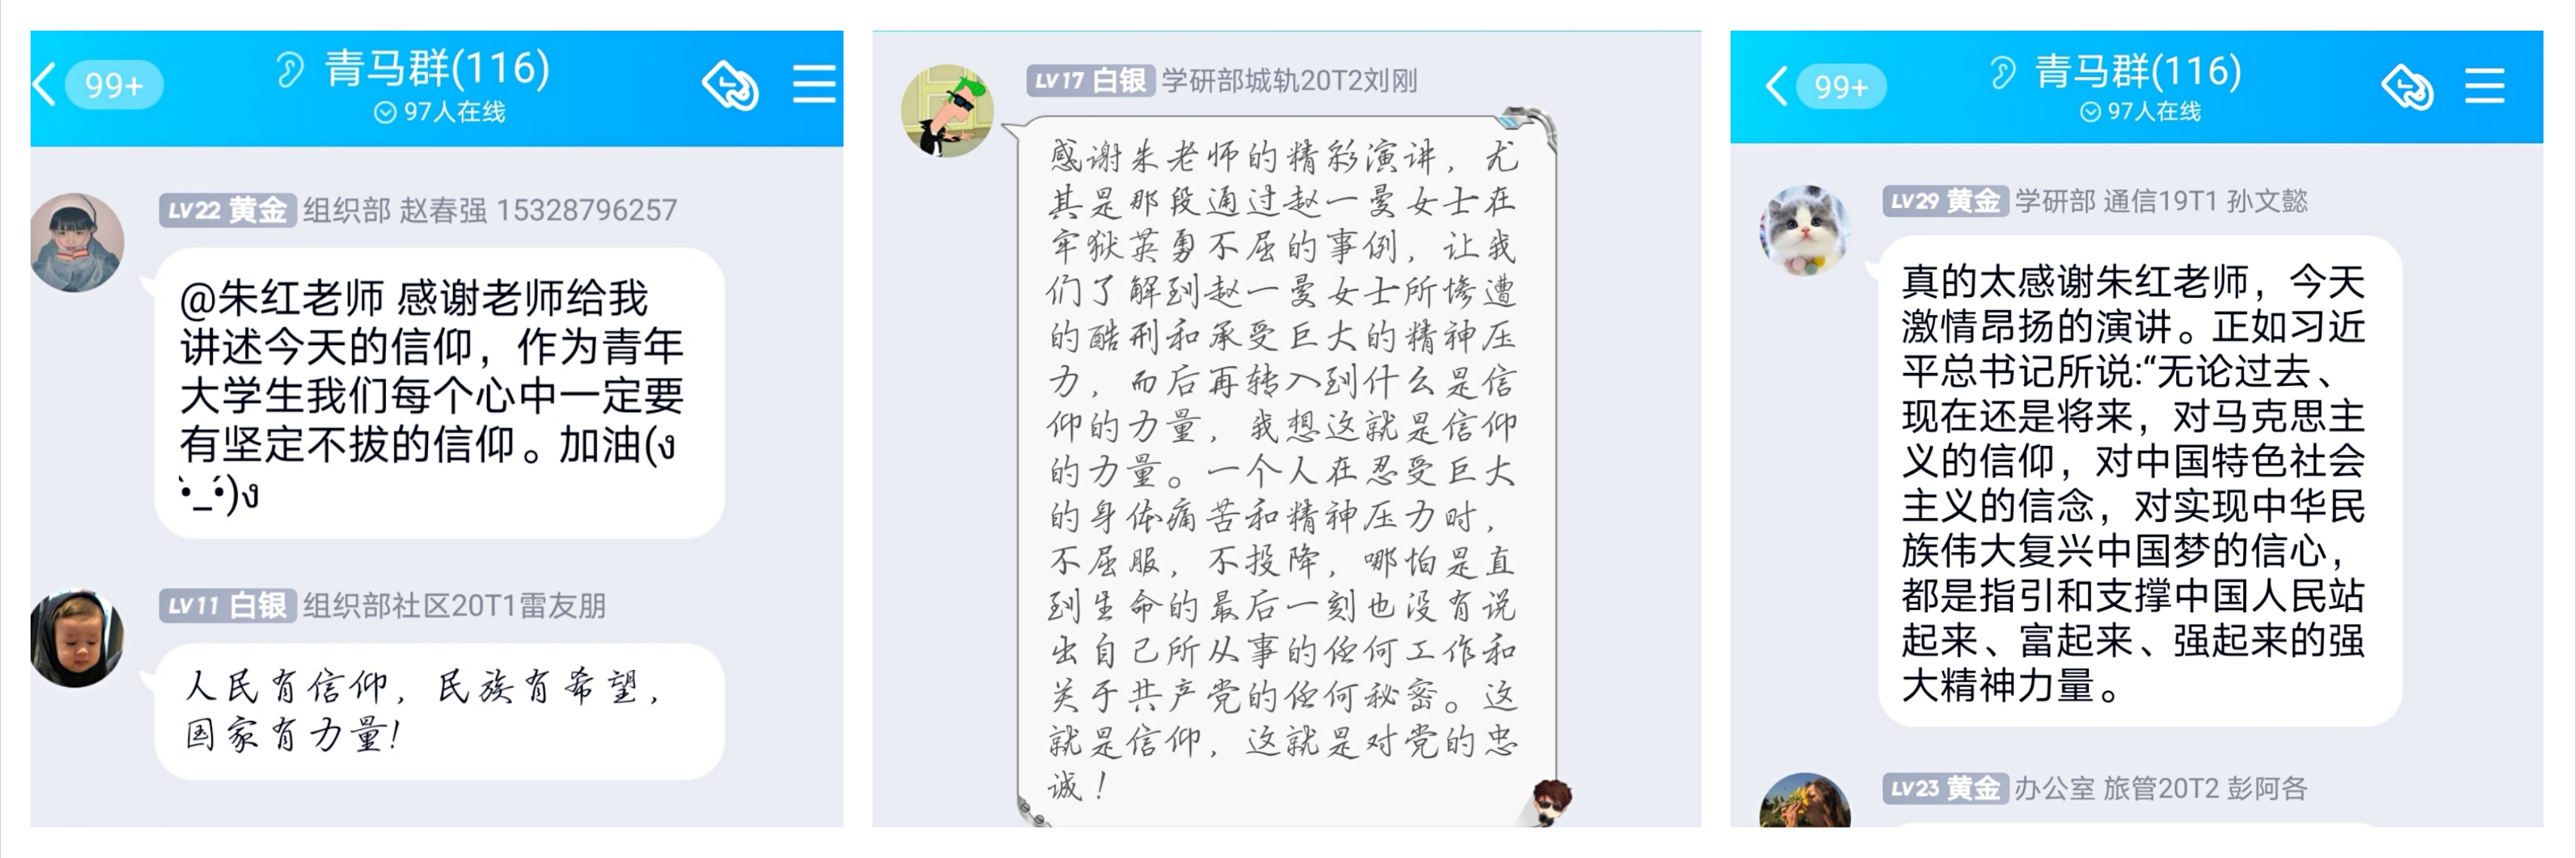 99+
青马群(116)
97人在线
LV22 黄金 组织部 赵春强 15328796257
@朱红老师 感谢老师给我
讲述今天的信仰，作为青年
大学生我们每个心中一定要
有坚定不拔的信仰。加油(ง
•̀_•́)ง
LV11 白银 组织部社区20T1雷友朋
人民有信仰，民族有希望，
国家有力量!
LV17 白银 学研部城轨20T2刘刚
感谢朱老师的精彩演讲，尤
其是那段通过赵一曼女士在
牢狱英勇不屈的事例，让我
们了解到赵一曼女士所惨遭
的酷刑和承受巨大的精神压
力，而后再转入到什么是信
仰的力量，我想这就是信仰
的力量。一个人在忍受巨大
的身体痛苦和精神压力时，
不屈服，不投降，哪怕是直
到生命的最后一刻也没有说
出自己所从事的任何工作和
关于共产党的任何秘密。这
就是信仰，这就是对党的忠
诚！
99+
青马群(116)
97人在线
LV29 黄金 学研部 通信19T1 孙文懿
真的太感谢朱红老师，今天
激情昂扬的演讲。正如习近
平总书记所说:“无论过去、
现在还是将来，对马克思主
义的信仰，对中国特色社会
主义的信念，对实现中华民
族伟大复兴中国梦的信心，
都是指引和支撑中国人民站
起来、富起来、强起来的强
大精神力量。
LV23 黄金 办公室 旅管20T2 彭阿各